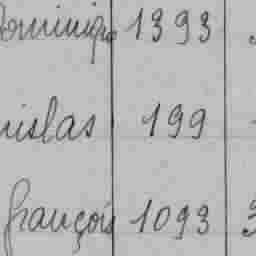 Dominique 1393
nislas 199
françois 1093 3